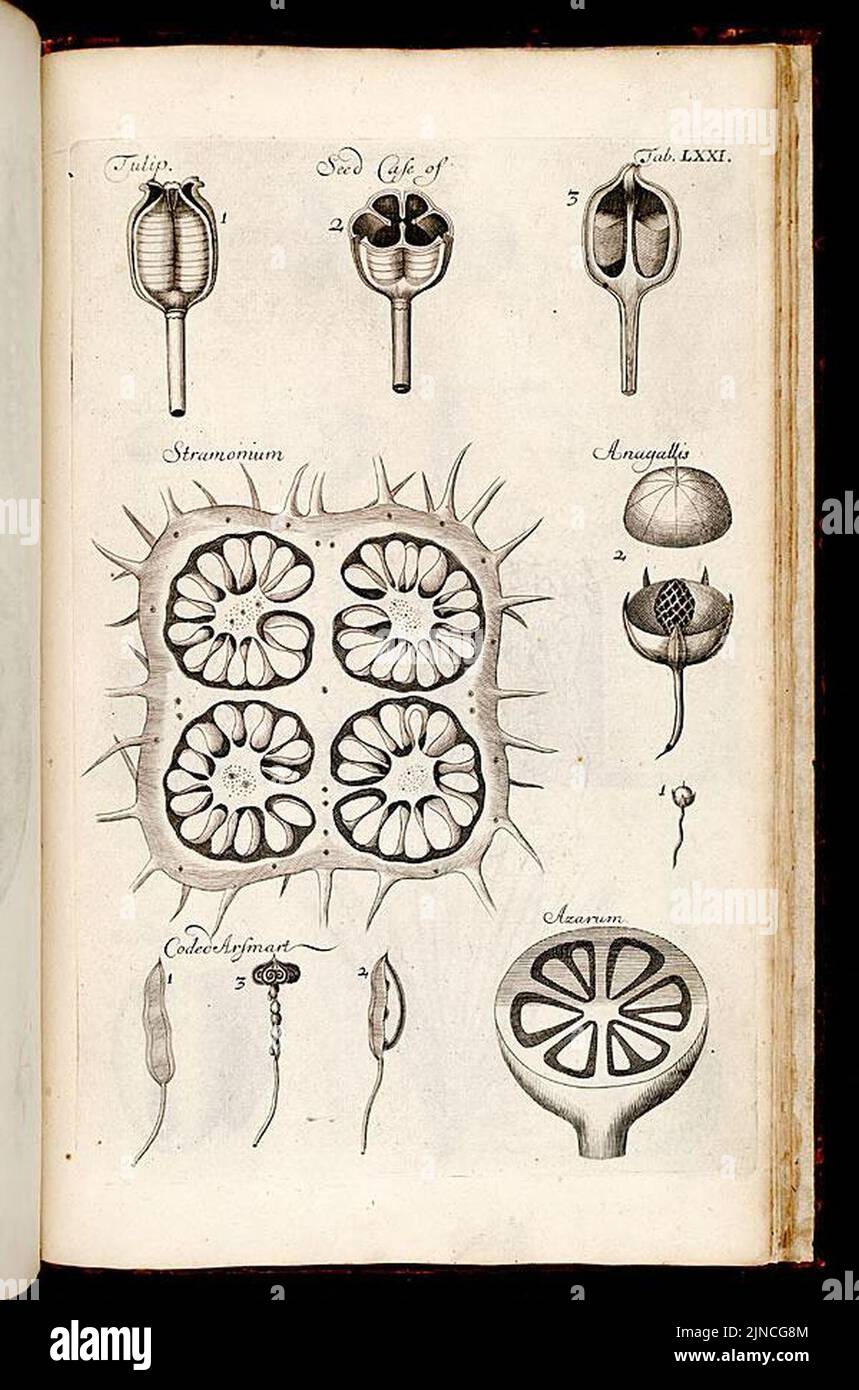 Tulip. Seed Caſe of Tab. LXXI.
1 2 3
Stramonium Anagallis
2
1
Azarum
Coded Arſmart
1 3 2
alamy
Image ID: 2JNCG8M
www.alamy.com